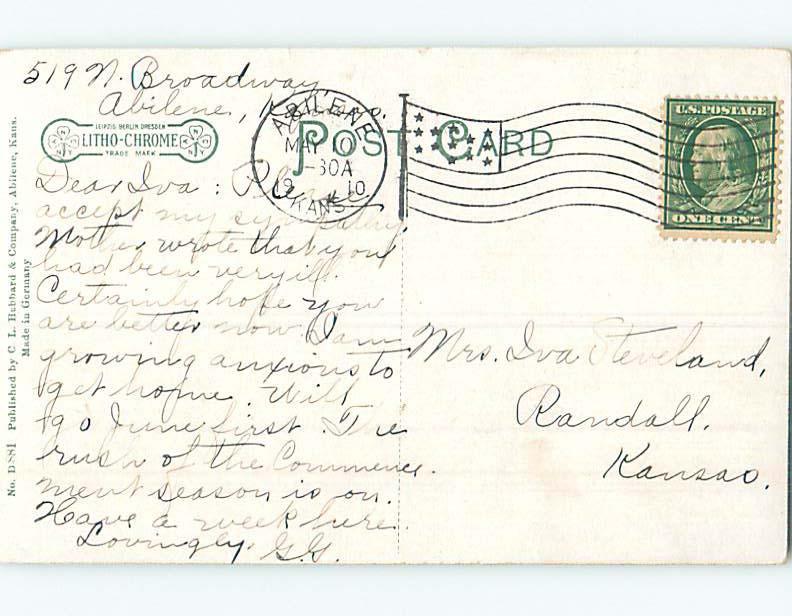 519 N. Broadway
Abilene,
POST CARD
ABILENE
MAY 10
-30A
1910
KANS.
U.S. POSTAGE
ONE CENT
LEIPZIG BERLIN DRESDEN
LITHO-CHROME
TRADE MARK
No. D881 Published by C. L. Hubbard & Company, Abilene, Kans.
Made in Germany
Dear Iva: Please
accept my sympathy
Mother wrote that you
had been very ill.
Certainly hope you
are better now I am
growing anxious to
get home. Will
go June first. The
rush of the Commence-
ment season is on.
Have a week here.
Lovingly, G.G.
Mrs. Iva Steveland,
Randall.
Kansas.